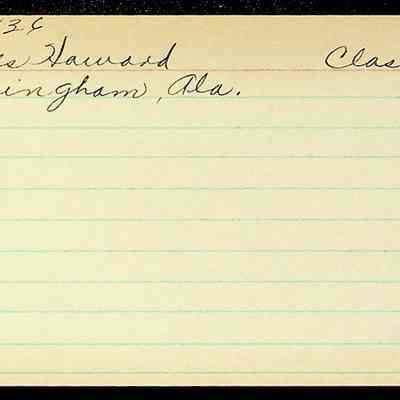 34
es Howard Clas
ingham, Ala.